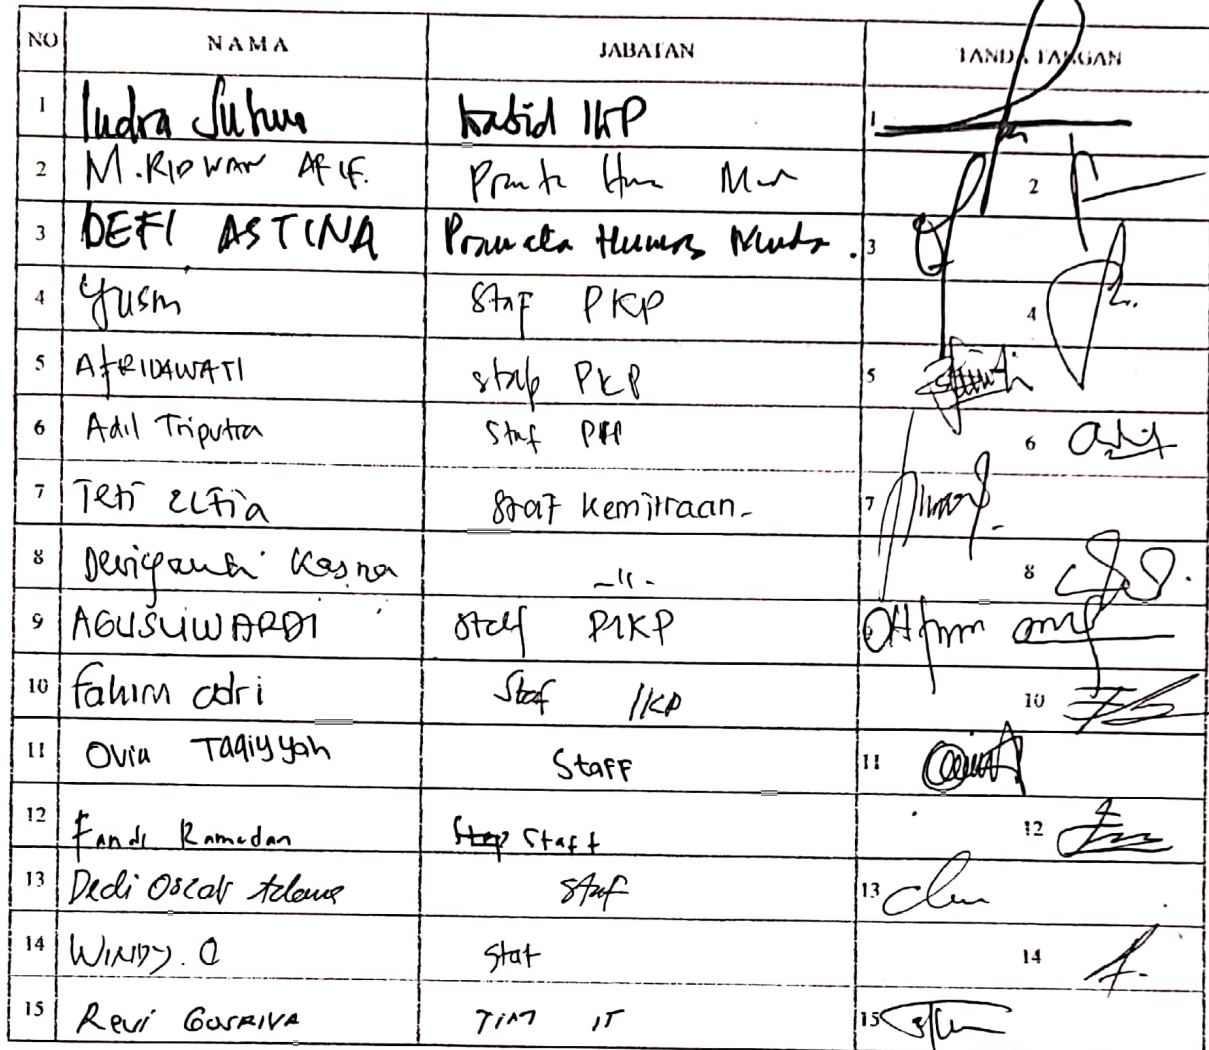 NO NAMA JABATAN TANDA TANGAN
1 Indra Sukma Kabid IKP 1
2 M. RIDWAN AFIF. Pranata Hum Mud 2
3 DEFI ASTINA Pranata Humas Muda. 3
4 Yusni Staf PKP 4
5 AFRIDAWATI staf PKP 5
6 Adil Triputra Staf 6
7 Teti Elfia Staf Kemitraan- 7
8 Deviyanti Kasna -"- 8
9 AGUSLIWARDI Staf PIKP 9
10 Fahim adri Staf IKP 10
11 Ovia Taqiyyah Staff 11
12 Fandi Ramadan Staff 12
13 Dedi Oscar Adams Staf 13
14 WINDY. O Staf 14
15 Revi GUSRIVA TIM IT 15